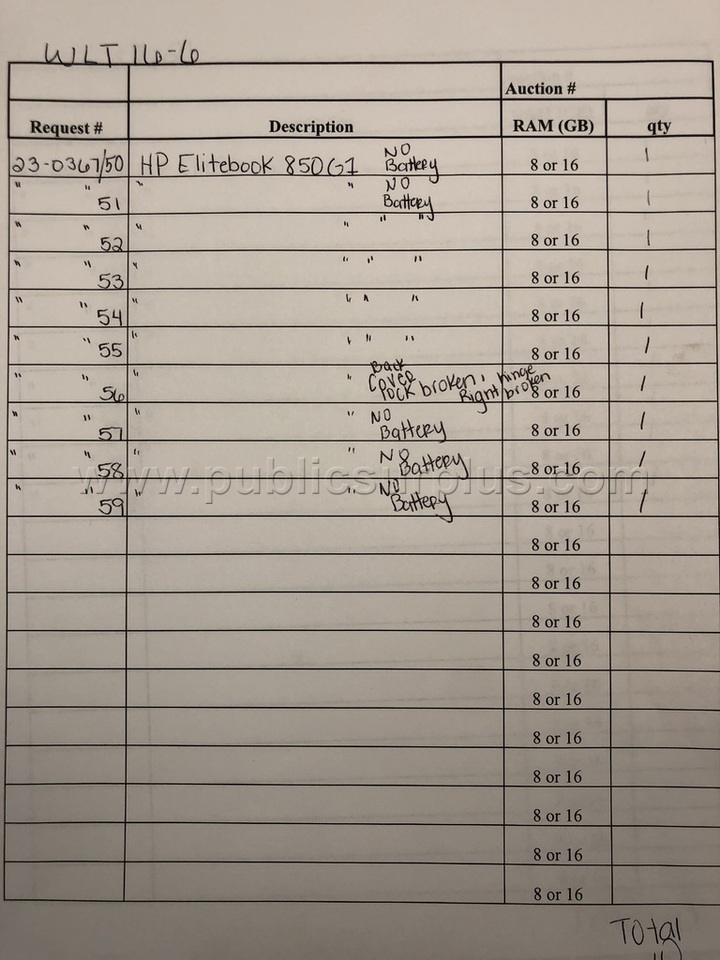 WLT 16-6
Auction #
Request # Description RAM (GB) qty
23-0367/50 HP Elitebook 850G1 NO Battery 8 or 16 1
" " 51 " " NO Battery 8 or 16 1
" " 52 " " " " 8 or 16 1
" " 53 " " " " 8 or 16 1
" " 54 " " " " 8 or 16 1
" " 55 " " " " 8 or 16 1
" " 56 " " Back Cover lock broken, Right hinge broken 8 or 16 1
" " 57 " " NO Battery 8 or 16 1
" " 58 " " NO Battery 8 or 16 1
www.publicsurplus.com
" " 59 " " NO Battery 8 or 16 1
8 or 16
8 or 16
8 or 16
8 or 16
8 or 16
8 or 16
8 or 16
8 or 16
8 or 16
8 or 16
Total